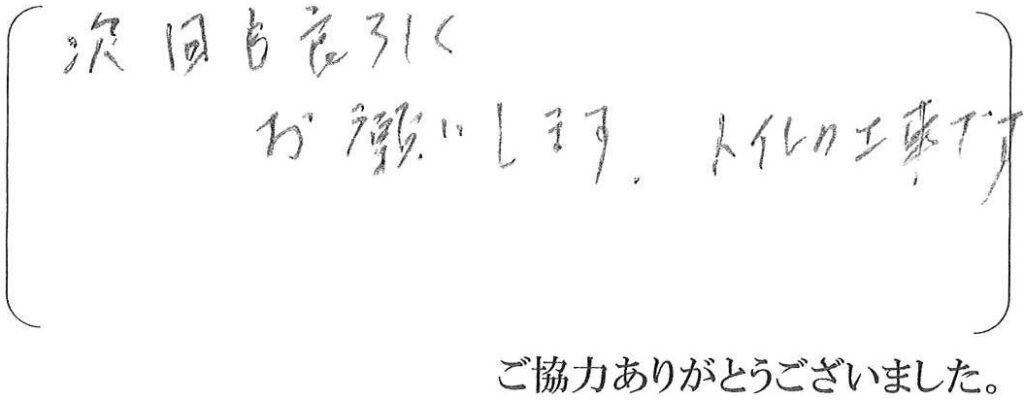 次回も良引く
お願いします. トイレの工事です
ご協力ありがとうございました。